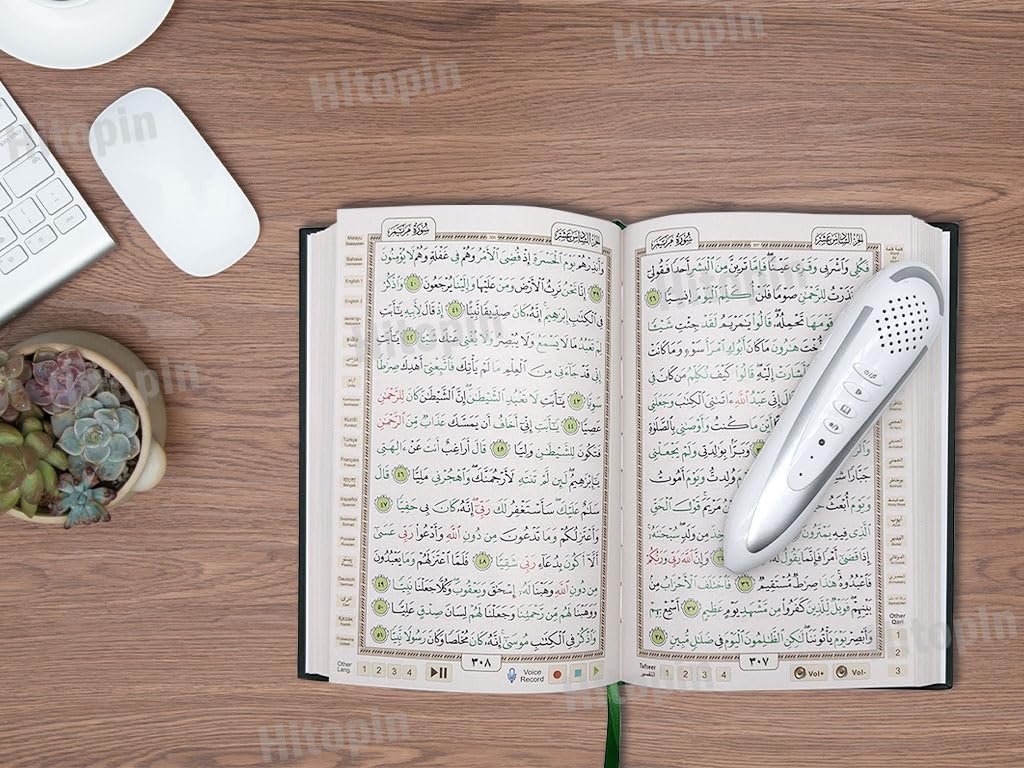 Hitopin
Hitopin
Hitopin
Hitopin
سورة مريم
الجزء السادس عشر
فَكُلِي وَاشْرَبِي وَقَرِّي عَيْنًا فَإِمَّا تَرَيِنَّ مِنَ الْبَشَرِ أَحَدًا فَقُولِي
نَذَرْتُ لِلرَّحْمَٰنِ صَوْمًا فَلَنْ أُكَلِّمَ الْيَوْمَ إِنسِيًّا ٢٦
قَوْمَهَا تَحْمِلُهُ قَالُوا يَا مَرْيَمُ لَقَدْ جِئْتِ شَيْئًا
أُخْتَ هَارُونَ مَا كَانَ أَبُوكِ امْرَأَ سَوْءٍ وَمَا كَانَتْ
فَأَشَارَتْ إِلَيْهِ قَالُوا كَيْفَ نُكَلِّمُ مَن كَانَ فِي
إِنِّي عَبْدُ اللَّهِ آتَانِيَ الْكِتَابَ وَجَعَلَنِي
أَيْنَ مَا كُنتُ وَأَوْصَانِي بِالصَّلَاةِ
وَبَرًّا بِوَالِدَتِي وَلَمْ يَجْعَلْنِي
جَبَّارًا وُلِدتُّ وَيَوْمَ أَمُوتُ
وَيَوْمَ أُبْعَثُ مَرْيَمَ قَوْلَ الْحَقِّ
الَّذِي فِيهِ يَمْتَرُونَ مِن وَلَدٍ سُبْحَانَهُ
إِذَا قَضَىٰ أَمْرًا فَإِنَّمَا يَقُولُ لَهُ وَإِنَّ اللَّهَ رَبِّي وَرَبُّكُمْ
فَاعْبُدُوهُ هَٰذَا صِرَاطٌ مُّسْتَقِيمٌ ٣٦ فَاخْتَلَفَ الْأَحْزَابُ مِن
بَيْنِهِمْ فَوَيْلٌ لِّلَّذِينَ كَفَرُوا مِن مَّشْهَدِ يَوْمٍ عَظِيمٍ ٣٧ أَسْمِعْ بِهِمْ
وَأَبْصِرْ يَوْمَ يَأْتُونَنَا لَٰكِنِ الظَّالِمُونَ الْيَوْمَ فِي ضَلَالٍ مُّبِينٍ ٣٨
٣٠٧
Tafseer التفسير 1 2 3 4 Vol+ Vol-
Other Qari
1
2
3
سورة مريم
الجزء السادس عشر
وَأَنذِرْهُمْ يَوْمَ الْحَسْرَةِ إِذْ قُضِيَ الْأَمْرُ وَهُمْ فِي غَفْلَةٍ وَهُمْ لَا يُؤْمِنُونَ
٣٩ إِنَّا نَحْنُ نَرِثُ الْأَرْضَ وَمَنْ عَلَيْهَا وَإِلَيْنَا يُرْجَعُونَ ٤٠ وَاذْكُرْ
فِي الْكِتَابِ إِبْرَاهِيمَ إِنَّهُ كَانَ صِدِّيقًا نَّبِيًّا ٤١ إِذْ قَالَ لِأَبِيهِ يَا أَبَتِ
لِمَ تَعْبُدُ مَا لَا يَسْمَعُ وَلَا يُبْصِرُ وَلَا يُغْنِي عَنكَ شَيْئًا ٤٢ يَا أَبَتِ
إِنِّي قَدْ جَاءَنِي مِنَ الْعِلْمِ مَا لَمْ يَأْتِكَ فَاتَّبِعْنِي أَهْدِكَ صِرَاطًا
سَوِيًّا ٤٣ يَا أَبَتِ لَا تَعْبُدِ الشَّيْطَانَ إِنَّ الشَّيْطَانَ كَانَ لِلرَّحْمَٰنِ
عَصِيًّا ٤٤ يَا أَبَتِ إِنِّي أَخَافُ أَن يَمَسَّكَ عَذَابٌ مِّنَ الرَّحْمَٰنِ
فَتَكُونَ لِلشَّيْطَانِ وَلِيًّا ٤٥ قَالَ أَرَاغِبٌ أَنتَ عَنْ آلِهَتِي
يَا إِبْرَاهِيمُ لَئِن لَّمْ تَنتَهِ لَأَرْجُمَنَّكَ وَاهْجُرْنِي مَلِيًّا ٤٦ قَالَ
سَلَامٌ عَلَيْكَ سَأَسْتَغْفِرُ لَكَ رَبِّي إِنَّهُ كَانَ بِي حَفِيًّا ٤٧
وَأَعْتَزِلُكُمْ وَمَا تَدْعُونَ مِن دُونِ اللَّهِ وَأَدْعُو رَبِّي عَسَىٰ
أَلَّا أَكُونَ بِدُعَاءِ رَبِّي شَقِيًّا ٤٨ فَلَمَّا اعْتَزَلَهُمْ وَمَا يَعْبُدُونَ
مِن دُونِ اللَّهِ وَهَبْنَا لَهُ إِسْحَاقَ وَيَعْقُوبَ وَكُلًّا جَعَلْنَا نَبِيًّا ٤٩
وَوَهَبْنَا لَهُم مِّن رَّحْمَتِنَا وَجَعَلْنَا لَهُمْ لِسَانَ صِدْقٍ عَلِيًّا ٥٠
وَاذْكُرْ فِي الْكِتَابِ مُوسَىٰ إِنَّهُ كَانَ مُخْلَصًا وَكَانَ رَسُولًا نَّبِيًّا ٥١
٣٠٨
Other Lang 1 2 3 4 Voice Record
Bahasa
English 1
English 2
اردو
Türkçe
Français
Español
Deutsch
Hitopin
Hitopin
Hitopin
Hitopin
Hitopin
Hitopin